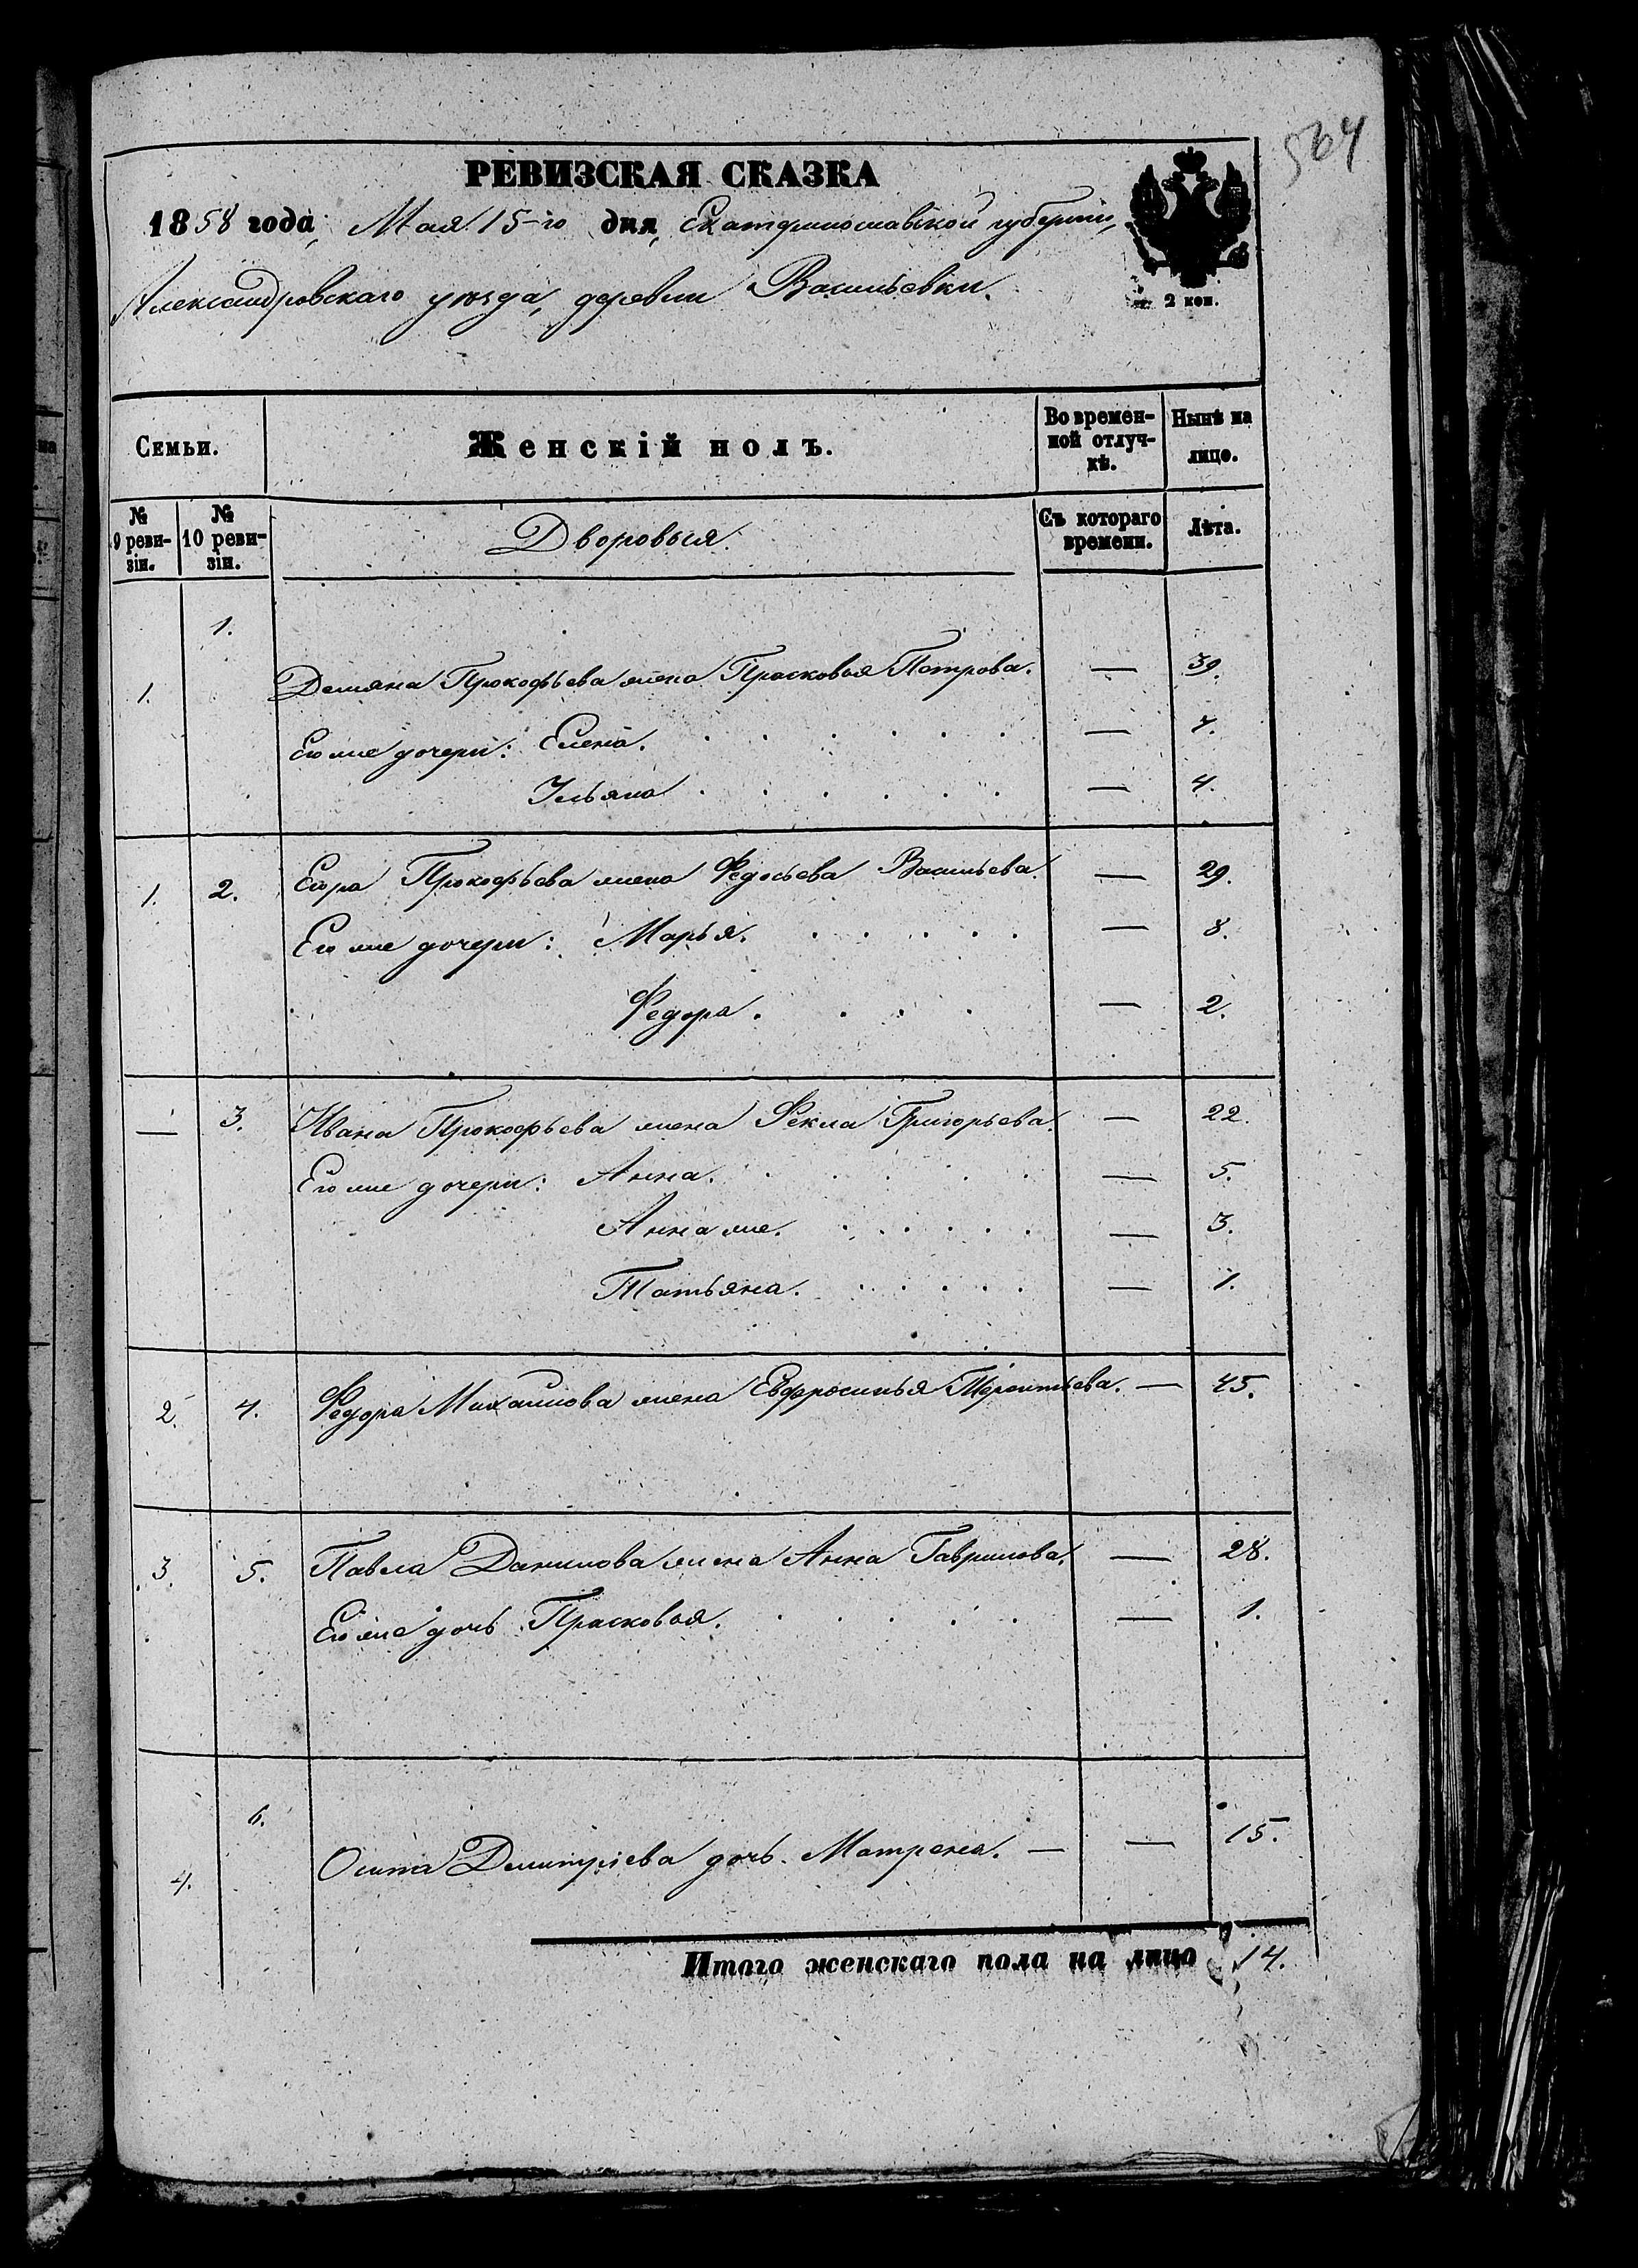 564
РЕВИЗСКАЯ СКАЗКА
1858 года, Мая 15-го дня, Екатеринославской губернии,
Александровскаго уезда, деревни Васильевки.
2 коп.
Семьи. Женскій полъ. Во времен-ной отлуч-кѣ. Нынѣ на лицо.
№ 9 реви-зіи. № 10 реви-зіи. Дворовыя. Съ котораго времени. Лѣта.
1.
1. Демяна Прокофьева жена Прасковья Петрова. — 39.
Его же дочери: Елена. — 7.
Ульяна — 4.
1. 2. Егора Прокофьева жена Федосьева Васильева. — 29.
Его же дочери: Марья. — 8.
Федора. — 2.
— 3. Ивана Прокофьева жена Фекла Григорьева. — 22.
Его же дочери: Анна. — 5.
Анна же. — 3.
Татьяна. — 1.
2. 4. Федора Михайлова жена Евфросинья Терентьева. — 45.
3. 5. Павла Данилова жена Анна Гаврилова. — 28.
Его же дочь Прасковья. — 1.
6.
4. Осипа Дмитріева дочь Матрена. — — 15.
Итого женскаго пола на лицо 14.